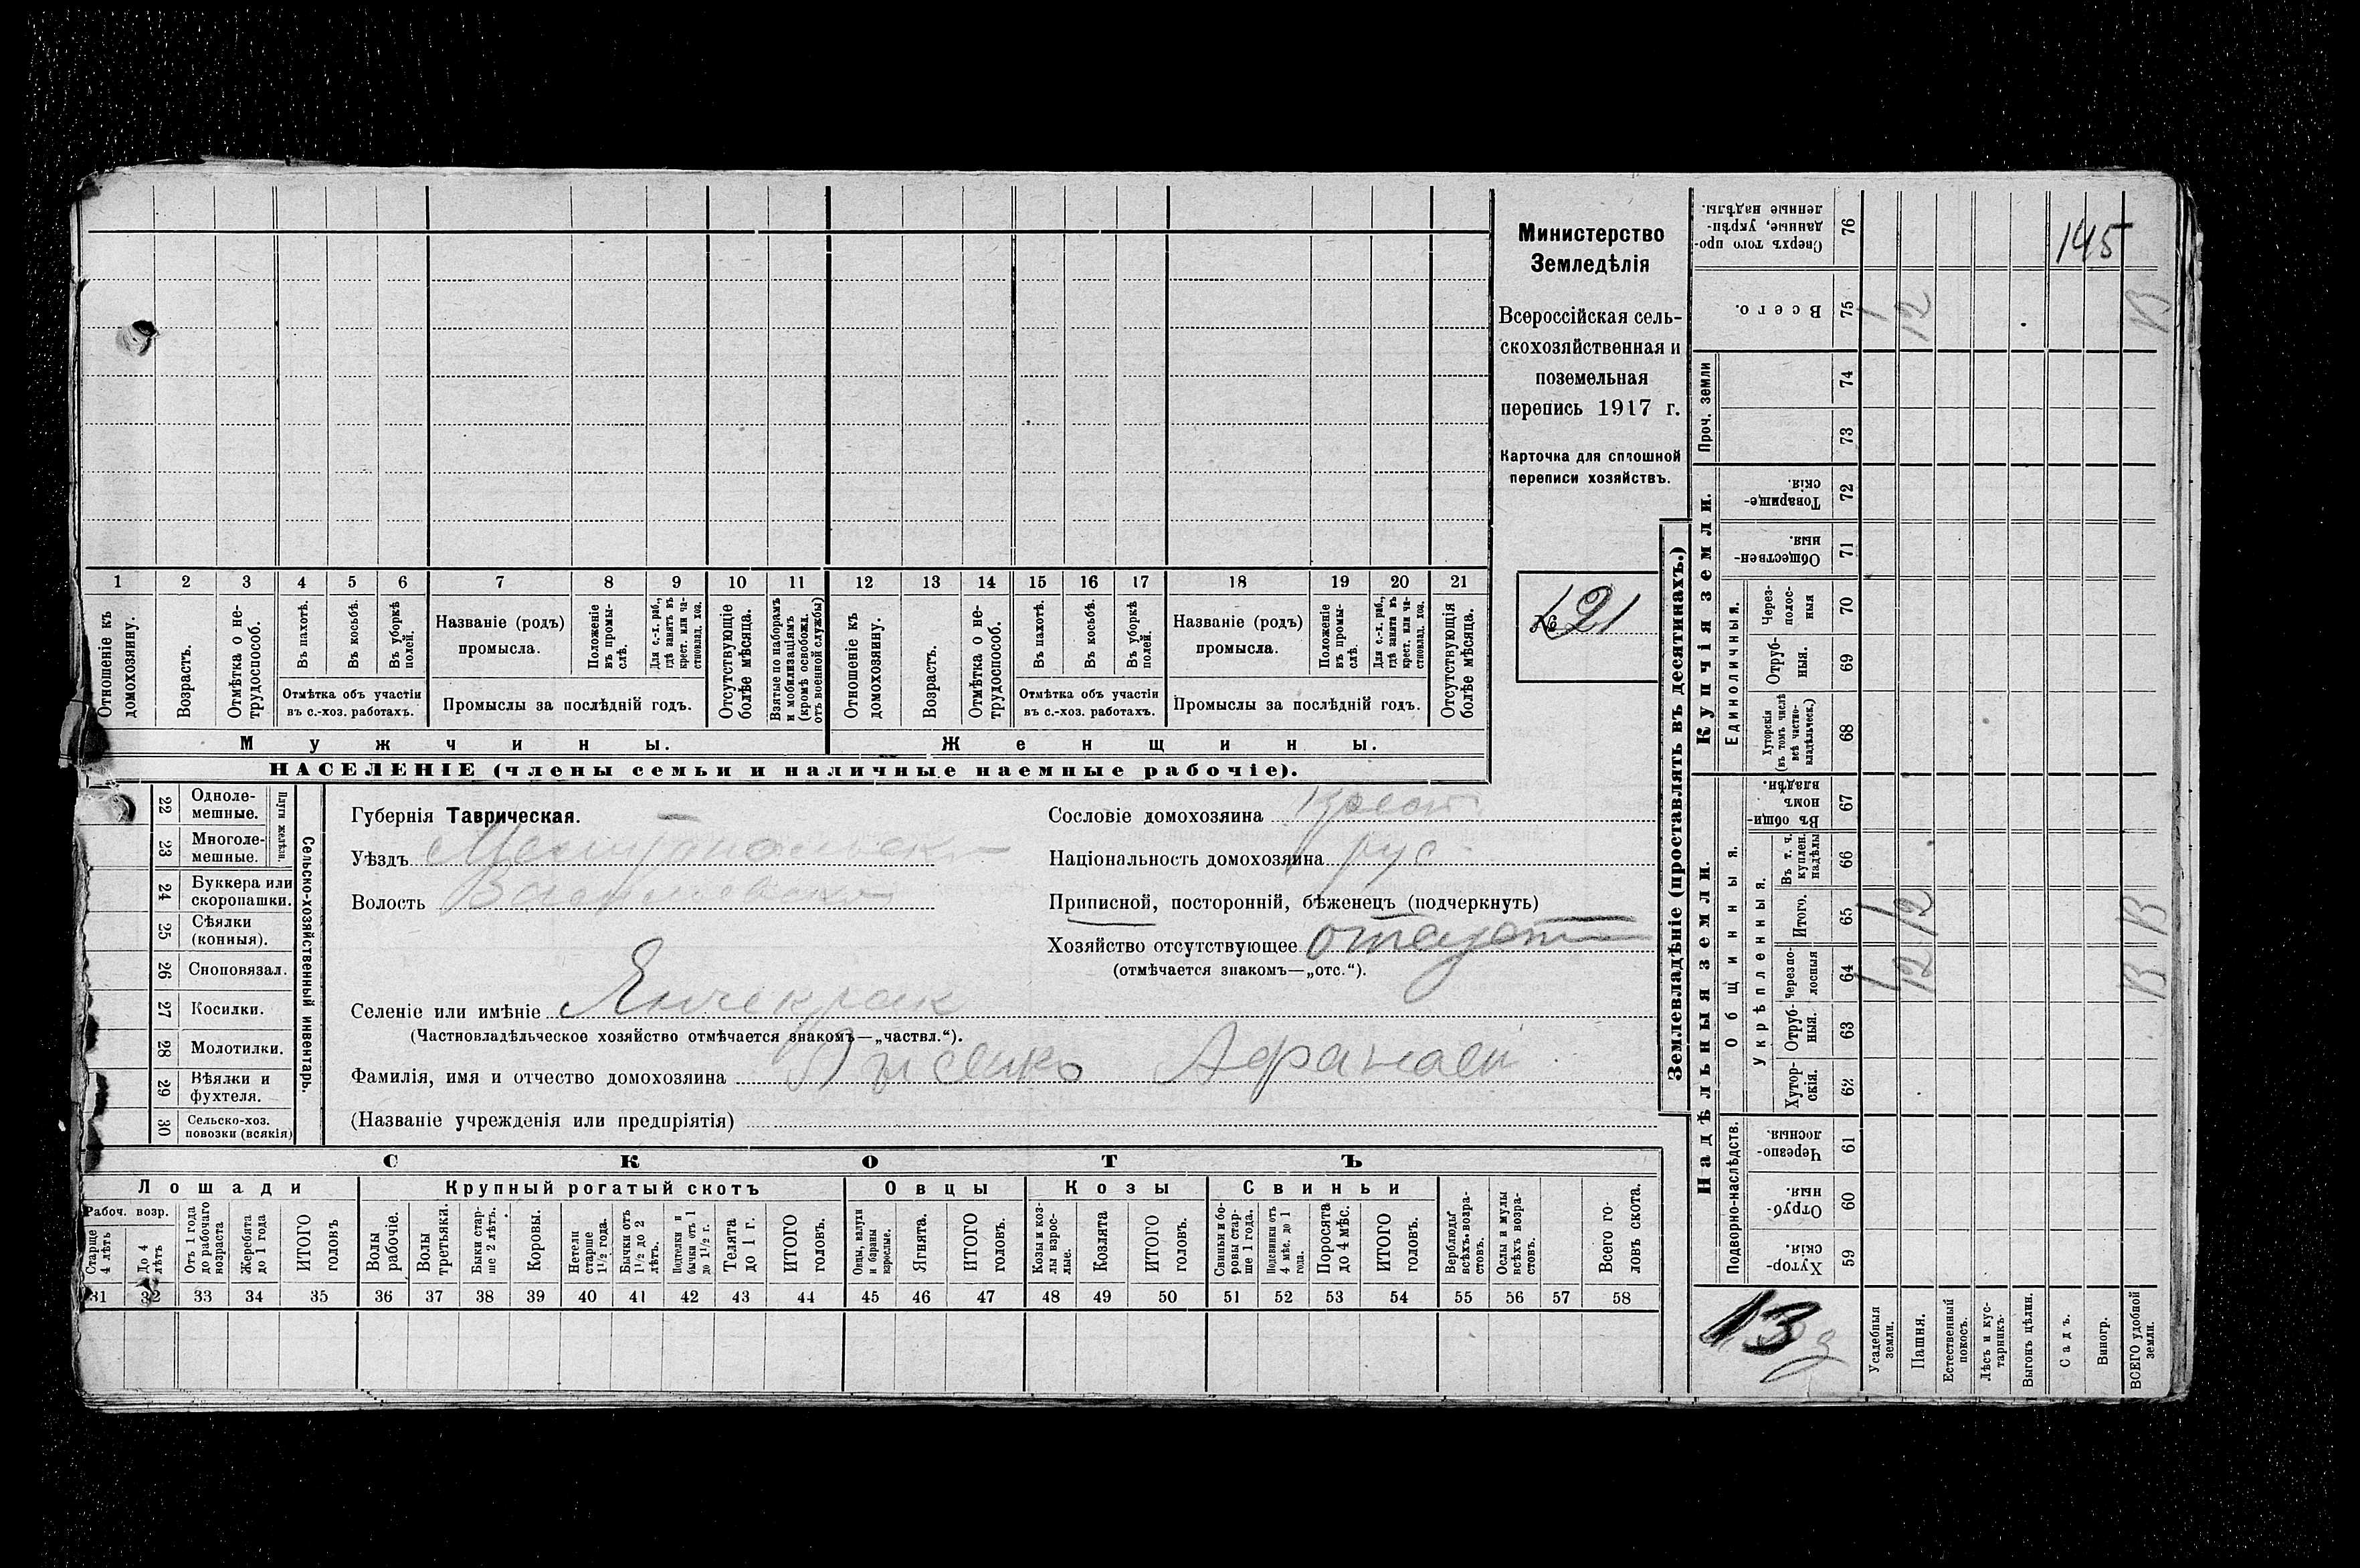 Министерство
Земледѣлія
Всероссійская сель-
скохозяйственная и
поземельная
перепись 1917 г.
Карточка для сплошной
переписи хозяйствъ.
№ 21
145
1 2 3 4 5 6 7 8 9 10 11 12 13 14 15 16 17 18 19 20 21
Отношеніе къ домохозяину.
Возрастъ.
Отмѣтка о не-трудоспособ.
Въ пахотѣ.
Въ косьбѣ.
Въ уборкѣ полей.
Отмѣтка объ участіи
въ с.-хоз. работахъ.
Названіе (родъ)
промысла.
Положеніе въ промы-слѣ.
Для с.-х. раб., гдѣ занятъ въ крест. или ча-стновлад. хоз.
Промыслы за послѣдній годъ.
Отсутствующіе болѣе мѣсяца.
Взятые по наборамъ и мобилизаціямъ (кромѣ освобожд. отъ военной службы)
Отношеніе къ домохозяину.
Возрастъ.
Отмѣтка о не-трудоспособ.
Въ пахотѣ.
Въ косьбѣ.
Въ уборкѣ полей.
Отмѣтка объ участіи
въ с.-хоз. работахъ.
Названіе (родъ)
промысла.
Положеніе въ промы-слѣ.
Для с.-х. раб., гдѣ занята въ крест. или ча-стновлад. хоз.
Промыслы за послѣдній годъ.
Отсутствующія болѣе мѣсяца.
Мужчины.
Женщины.
НАСЕЛЕНІЕ (члены семьи и наличные наемные рабочіе).
Сельско-хозяйственный инвентарь.
Плуги желѣзн.
22 Одноле-мешные.
23 Многоле-мешные.
24 Буккера или скоропашки.
25 Сѣялки (конныя).
26 Сноповязал.
27 Косилки.
28 Молотилки.
29 Вѣялки и фухтеля.
30 Сельско-хоз. повозки (всякія)
Губернія Таврическая.
Уѣздъ
Волость
Селеніе или имѣніе Янчекрак
(Частновладѣльческое хозяйство отмѣчается знакомъ—„частвл.“).
Фамилія, имя и отчество домохозяина Афанасій
(Названіе учрежденія или предпріятія)
Сословіе домохозяина Крест.
Національность домохозяина рус
Приписной, посторонній, бѣженецъ (подчеркнуть)
Хозяйство отсутствующее
(отмѣчается знакомъ—„отс.“).
СКОТЪ
Лошади
Крупный рогатый скотъ
Овцы
Козы
Свиньи
Рабоч. возр.
Старше 4 лѣтъ
До 4 лѣтъ
Отъ 1 года до рабочаго возраста
Жеребята до 1 года
ИТОГО головъ
Волы рабочіе.
Волы третьяки.
Быки стар-ше 2 лѣтъ.
Коровы.
Нетели старше 1½ года.
Бычки отъ 1½ до 2 лѣтъ.
Подтелки и бычки отъ 1 до 1½ г.
Телята до 1 г.
ИТОГО головъ.
Овцы, валухи и бараны взрослые.
Ягнята.
ИТОГО головъ.
Козы и коз-лы взрос-лые.
Козлята
ИТОГО головъ.
Свиньи и бо-ровы стар-ше 1 года.
Подсвинки отъ 4 мѣс. до 1 года.
Поросята до 4 мѣс.
ИТОГО головъ.
Верблюды всѣхъ возра-стовъ.
Ослы и мулы всѣхъ возра-стовъ.
Всего го-ловъ скота.
31 32 33 34 35 36 37 38 39 40 41 42 43 44 45 46 47 48 49 50 51 52 53 54 55 56 57 58
Землевладѣніе (проставлять въ десятинахъ.)
Надѣльныя земли.
Купчія земли.
Подворно-наслѣдств.
Общинныя.
укрѣпленныя.
Единоличныя.
Проч. земли
59 Хутор-скія.
60 Отруб-ныя.
61 Черезпо-лосныя.
62 Хутор-скія.
63 Отруб-ныя.
64 Черезпо-лосныя 1 12 13
65 Итого. 1 12 13
66 Въ т. ч. куплен. надѣлы
67 Въ общи-номъ владѣн.
68 Хуторскія (въ томъ числѣ всѣ частно-владѣльческ.)
69 Отруб-ныя.
70 Через-полос-ныя
71 Обществен-ныя.
72 Товарище-скія.
73
74
75 Всего. 1 12 13
76 Сверхъ того про-данные, укрѣп-ленные надѣлы.
13
Усадебныя земли.
Пашня.
Естественный покосъ.
Лѣсъ и кус-тарникъ.
Выгонъ цѣлин.
Садъ.
Виногр.
ВСЕГО удобной земли.